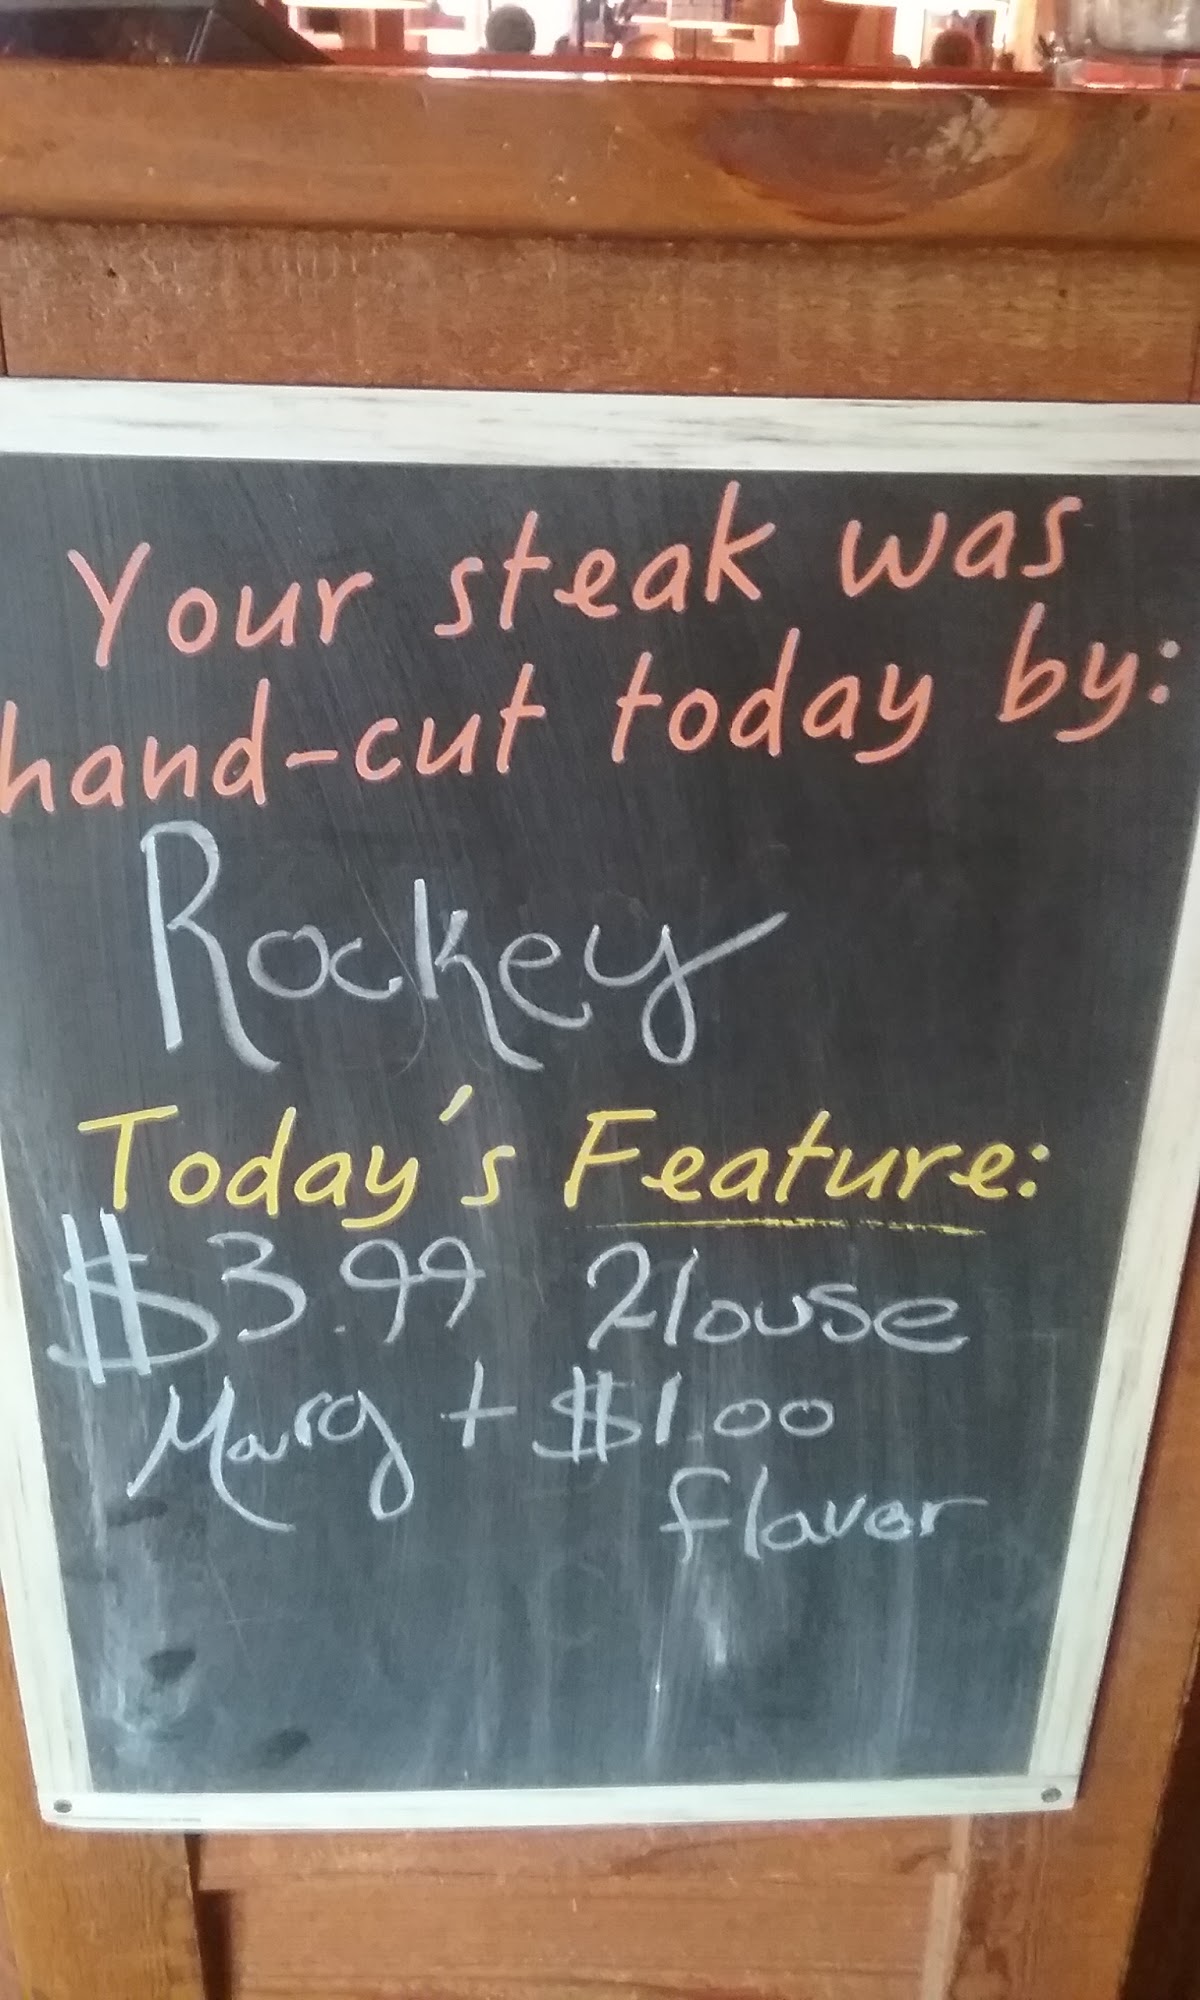 Your steak was
hand-cut today by:
Rockey
Today's Feature:
$3.99 House
Marg + $1.00
flavor